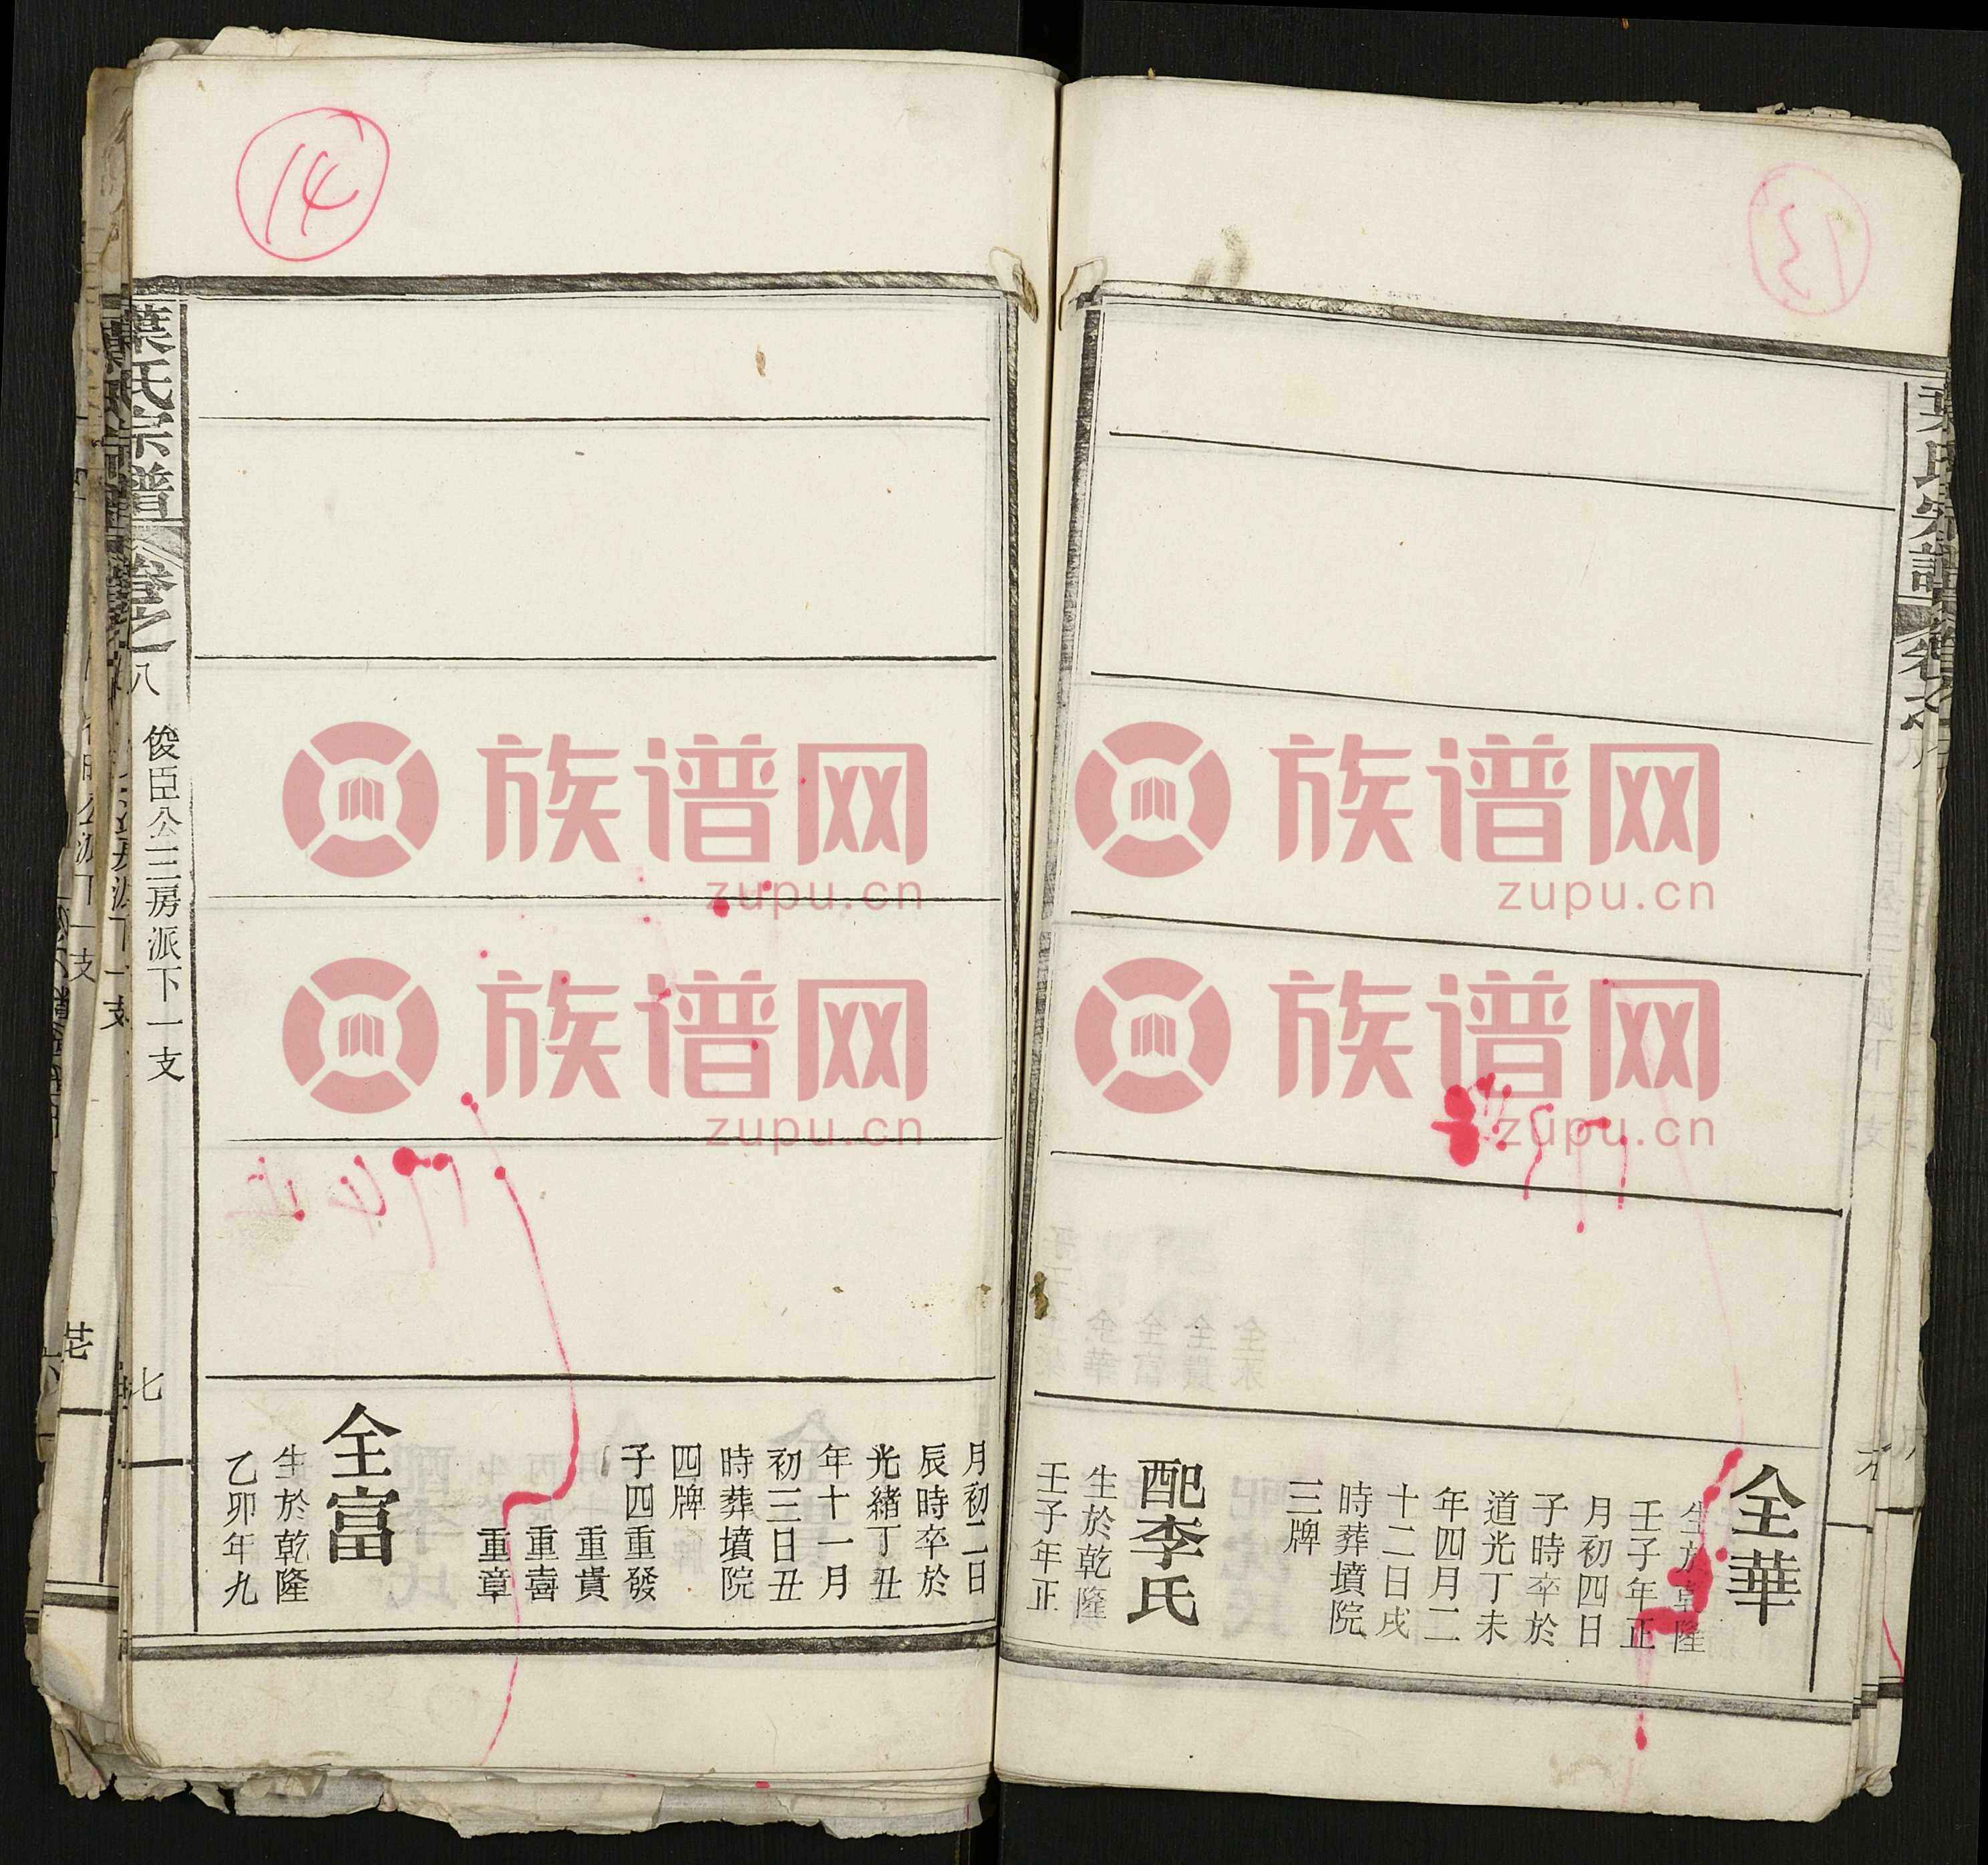 全華
生於乾隆
壬子年正
月初四日
子時卒於
道光丁未
年四月二
十二日戌
時葬墳院
三牌
配李氏
生於乾隆
壬子年正
月初二日
辰時卒於
光緒丁丑
年十一月
初三日丑
時葬墳院
四牌
子四重發
重貴
重喜
重章
全富
生於乾隆
乙卯年九
葉氏宗譜 卷之八 俊臣公三房派下一支 七
葉氏宗譜 卷之
14
13
族谱网
zupu.cn
族谱网
zupu.cn
族谱网
zupu.cn
族谱网
zupu.cn